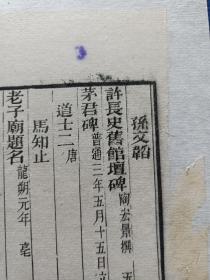 孫文韜
許長史舊館壇碑 陶宏景撰 五
茅君碑 普通三年五月十五日立
道士二 唐
馬知止
老子廟題名 龍朔元年 亳